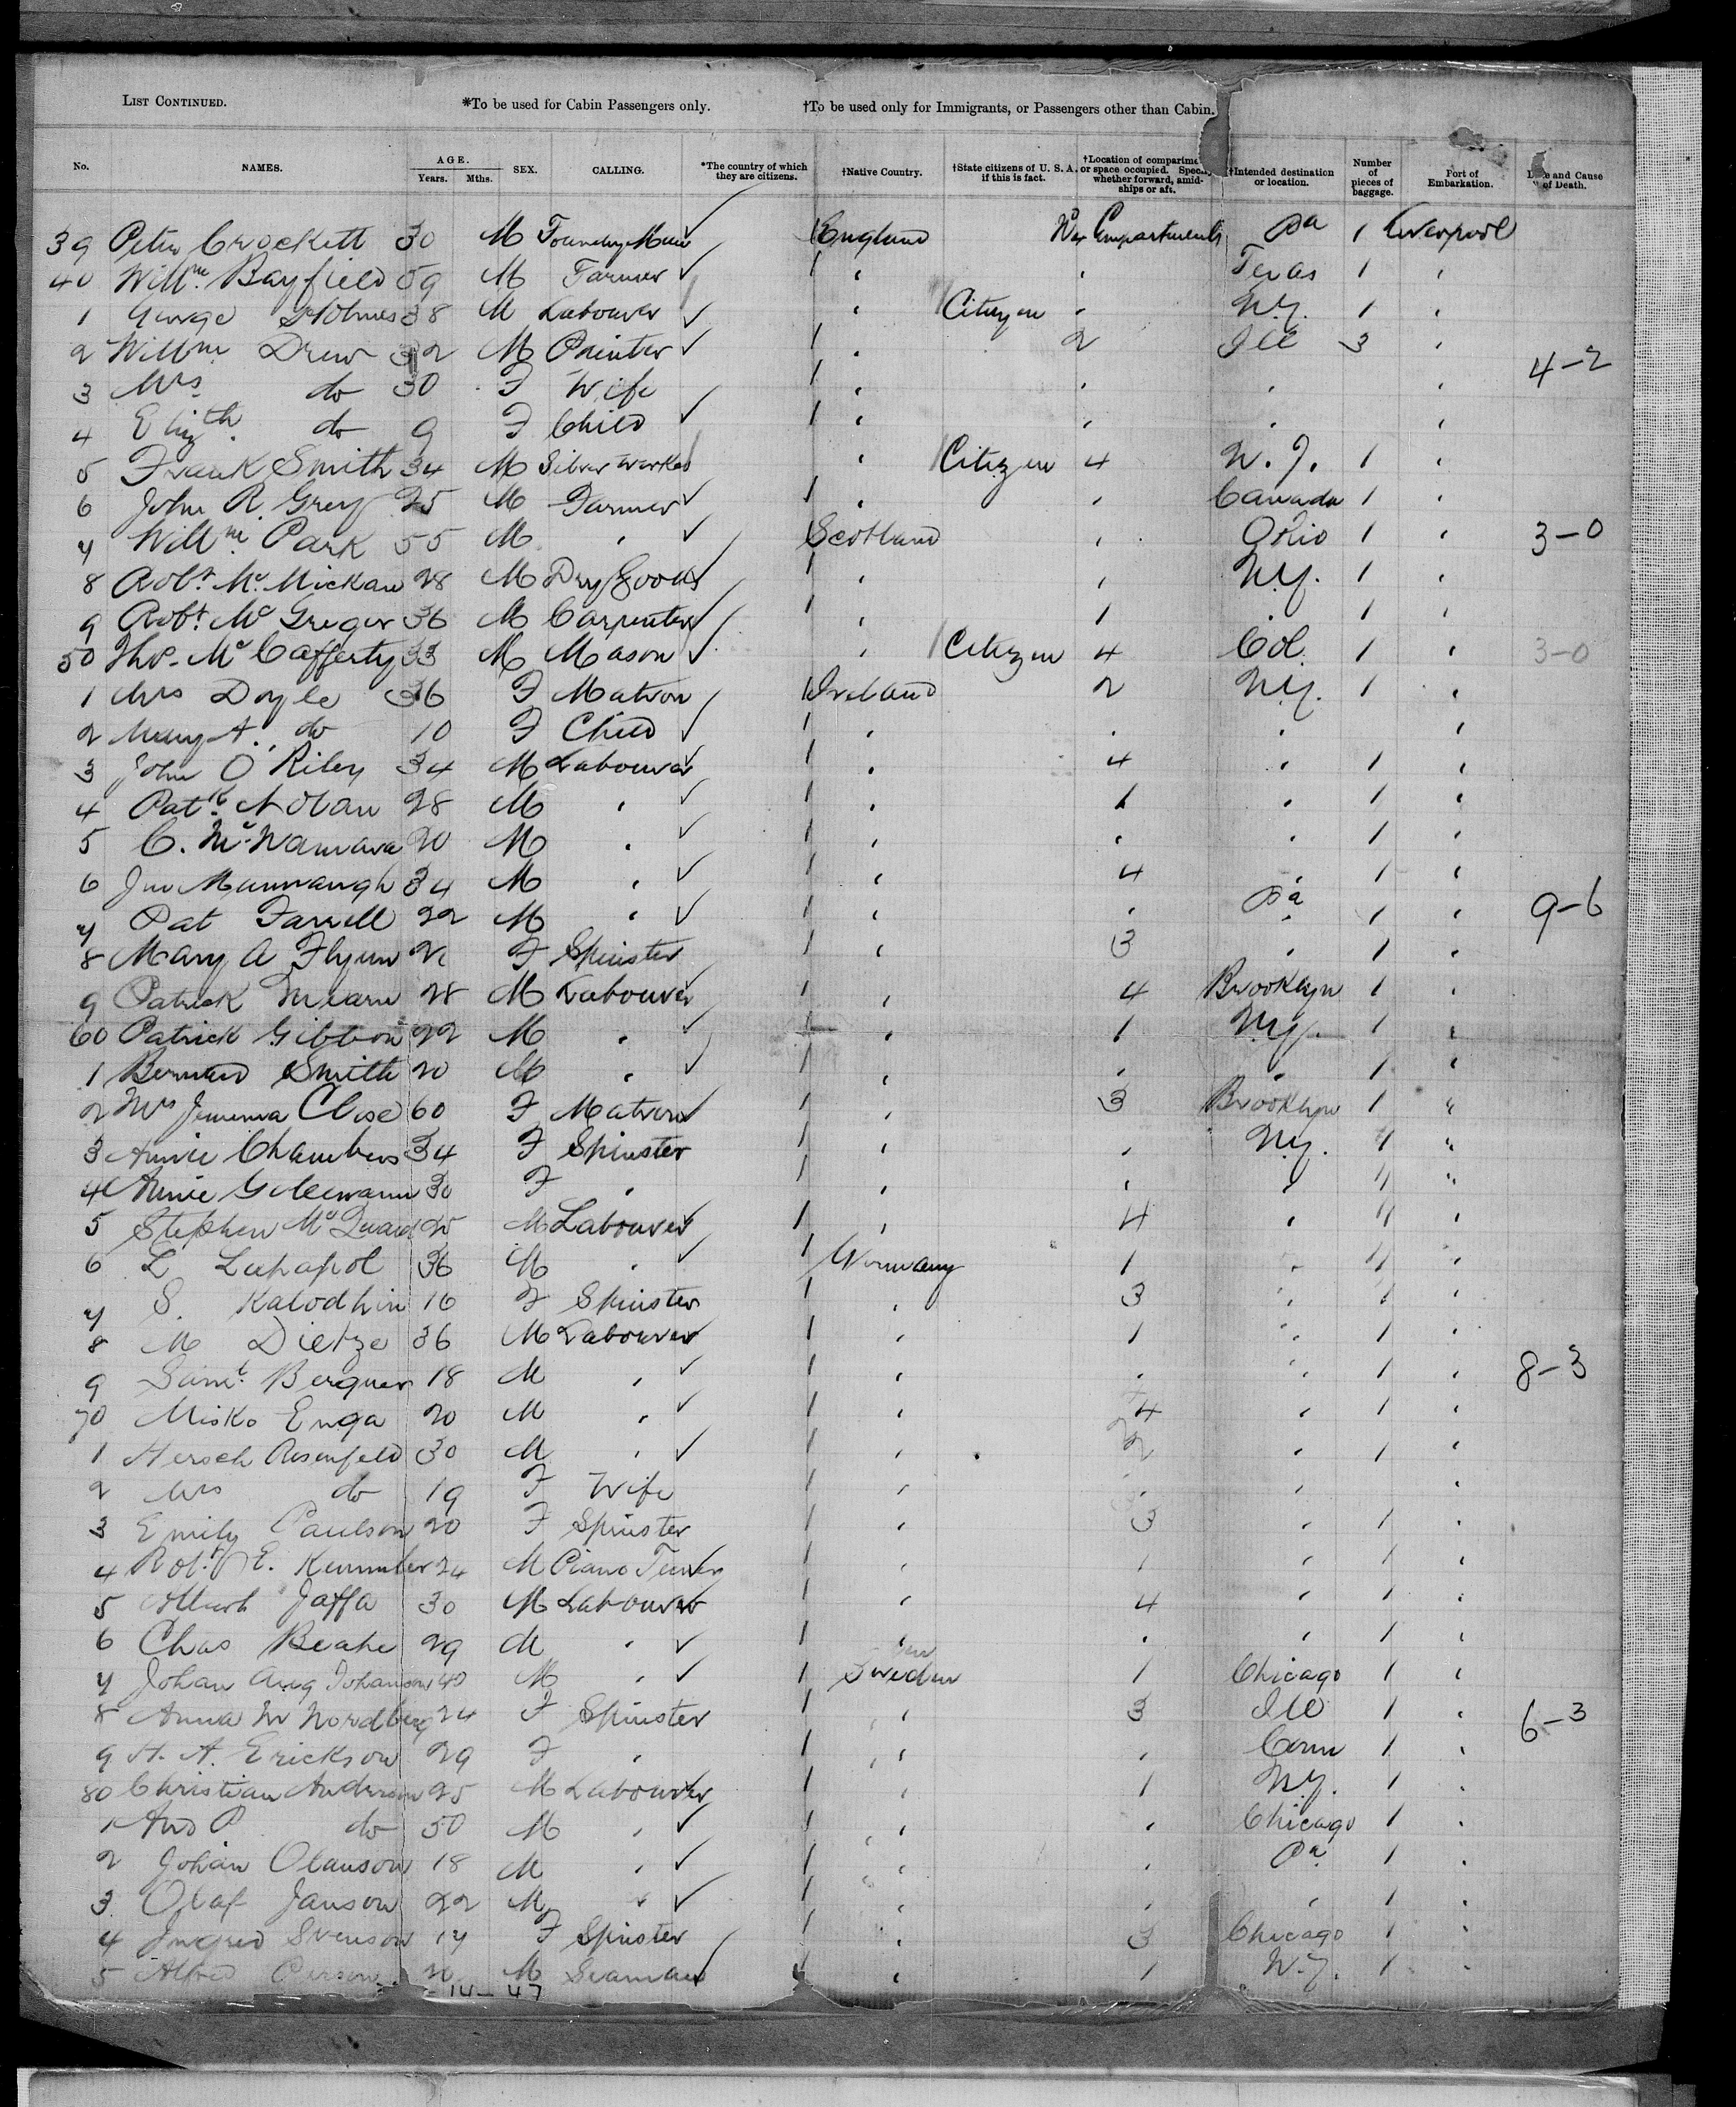 LIST CONTINUED. *To be used for Cabin Passengers only. †To be used only for Immigrants, or Passengers other than Cabin.
No. NAMES. AGE. Years. Mths. SEX. CALLING. *The country of which they are citizens. †Native Country. †State citizens of U. S. A. if this is fact. †Location of compartme or space occupied. Speci whether forward, amid-ships or aft. †Intended destination or location. Number of pieces of baggage. Port of Embarkation. and Cause of Death.
39 Peter Crockett 30 M Foundry Man ✓ 1 England No of Compartments Pa 1 Liverpool
40 Willm. Bayfield 59 M Farmer ✓ 1 " " Texas 1 "
1 George Holmes 38 M Labourer ✓ " Citizen " N.Y. 1 "
2 Willm Drew 32 M Painter ✓ 1 " 2 Ill 3 "
3 Mrs do 30 F Wife 1 " " " " 4-2
4 Elizth. do 9 F Child ✓ 1 " " " "
5 Frank Smith 34 M Silver Worker " 1 Citizen 4 N.J. 1 "
6 John R. Grey 25 M Farmer ✓ 1 " " Canada 1 "
7 Willm. Park 55 M " ✓ 1 Scotland " Ohio 1 " 3-0
8 Robt. Mc Mickan 28 M Dry Goods ✓ 1 " " N.Y. 1 "
9 Robt. Mc Greger 36 M Carpenter ✓ 1 " 1 " 1 "
50 Thos. Mc Cafferty 33 M Mason ✓ " 1 Citizen 4 Col. 1 " 3-0
1 Mrs Doyle 36 F Matron 1 Ireland 2 N.Y. 1 "
2 Mary A. do 10 F Child ✓ 1 " " " "
3 John O Riley 34 M Labourer ✓ 1 " 4 " 1 "
4 Patk. Nolan 28 M " ✓ 1 " 1 " 1 "
5 C. McNamara 20 M " ✓ 1 " " " 1 "
6 Jno 34 M " ✓ 1 " 4 " 1 "
7 Pat Farrell 22 M " ✓ 1 " " Pa 1 " 9-6
8 Mary A Flynn F Spinster 1 " 3 " 1 "
9 Patrick 28 M Labourer ✓ 1 " 4 Brooklyn 1 "
60 Patrick Gibbon 22 M " ✓ 1 " 1 N.Y. 1 "
1 Bernard Smith 20 M " ✓ 1 " " " 1 "
2 Mrs Jemima Close 60 F Matron ✓ 1 " 3 Brooklyn 1 "
3 Annie Chambers 34 F Spinster 1 " " N.Y. 1 "
4 Annie 30 F " 1 " " " 1 "
5 Stephen Mc Quaid 25 M Labourer ✓ 1 " 4 " 1 "
6 L 36 M " ✓ 1 Germany 1 " 1 "
7 S. Kalodhin 16 F Spinster 1 " 3 " 1 "
8 M Dietze 36 M Labourer ✓ 1 " 1 " 1 "
9 Saml. Berquer 18 M " ✓ 1 " " " 1 " 8-3
70 Misko Enga 20 M " ✓ 1 " 4 " 1 "
1 Hersch Rosenfeld 30 M " ✓ 1 " 2 " 1 "
2 Mrs do 19 F Wife 1 " " " "
3 Emily Paulson 20 F Spinster 1 " 3 " 1 "
4 Robt. E. Kummler 24 M Piano Tuner ✓ 1 " 1 " 1 "
5 Jaffa 30 M Labourer ✓ 1 " 4 " 1 "
6 Chas 29 M " ✓ 1 " " " 1 "
7 Johan Aug Johanson 40 M " ✓ 1 Sweden 1 Chicago 1 "
8 Anna M Nordberg 24 F Spinster 1 " 3 Ill 1 " 6-3
9 H. A. Erickson 29 F " 1 " " Conn 1 "
80 Christian Anderson 25 M Labourer ✓ 1 " 1 N.Y. 1 "
1 And P do 50 M " ✓ 1 " " Chicago 1 "
2 Johan Olauson 18 M " ✓ 1 " " Pa 1 "
3 Olaf Janson 22 M " ✓ 1 " " " 1 "
4 Ingrid Svenson 17 F Spinster 1 " 3 Chicago 1 "
5 Alfred Person M Seaman ✓ 1 " 1 N.Y. 1 "
14 47